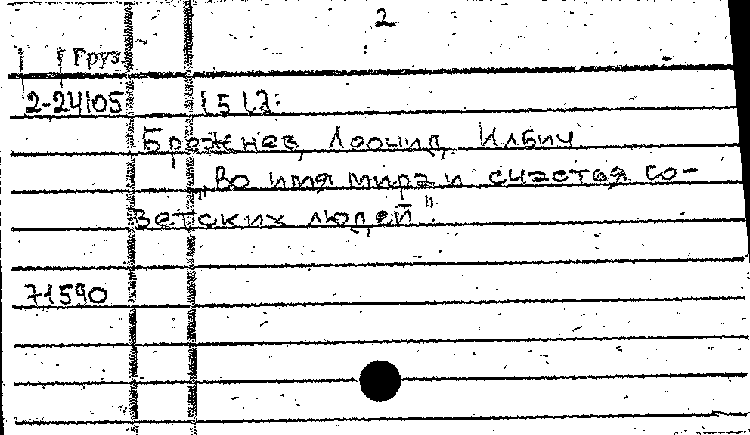 2
Груз.
2-24105 [5 L]:
Брежнев, Леонид Ильич
„Во имя мира и счастья со-
ветских людей".
71590